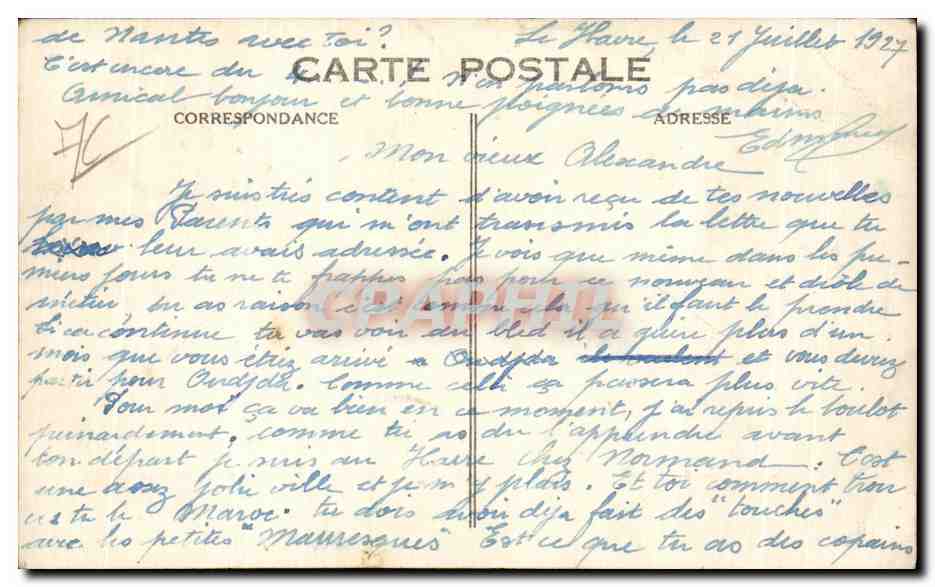 de Nantes avec toi? Le Havre, le 21 Juillet 1927
C'est encore du N'en parlons pas déja.
CARTE POSTALE
Amical bonjour et bonne poignées de mains
CORRESPONDANCE ADRESSE
Mon vieux Alexandre
Je suis très content d'avoir reçu de tes nouvelles
par mes Parents qui m'ont transmis la lettre que tu
leur avais adressée. Je vois que même dans les pre-
miers jours tu ne te frappes pas pour ce nouveau et drôle de
métier, tu as raison c'est comme cela qu'il faut le prendre
Si ca continue tu vas voir du bled il a guere plus d'un
mois que vous etiez arrivé a Oudjda et vous devez
partir pour Oudjda. Comme cela ça passera plus vite.
Pour moi ça va bien en ce moment, j'ai repris le boulot
peinardement. Comme tu as du l'apprendre avant
ton départ je suis au Havre chez Normand. C'est
une assez jolie ville et je m'y plais. Et toi comment trou
ves tu le Maroc. tu dois avoir déja fait des "touches"
avec les petites "Mauresques" Est ce que tu as des copains